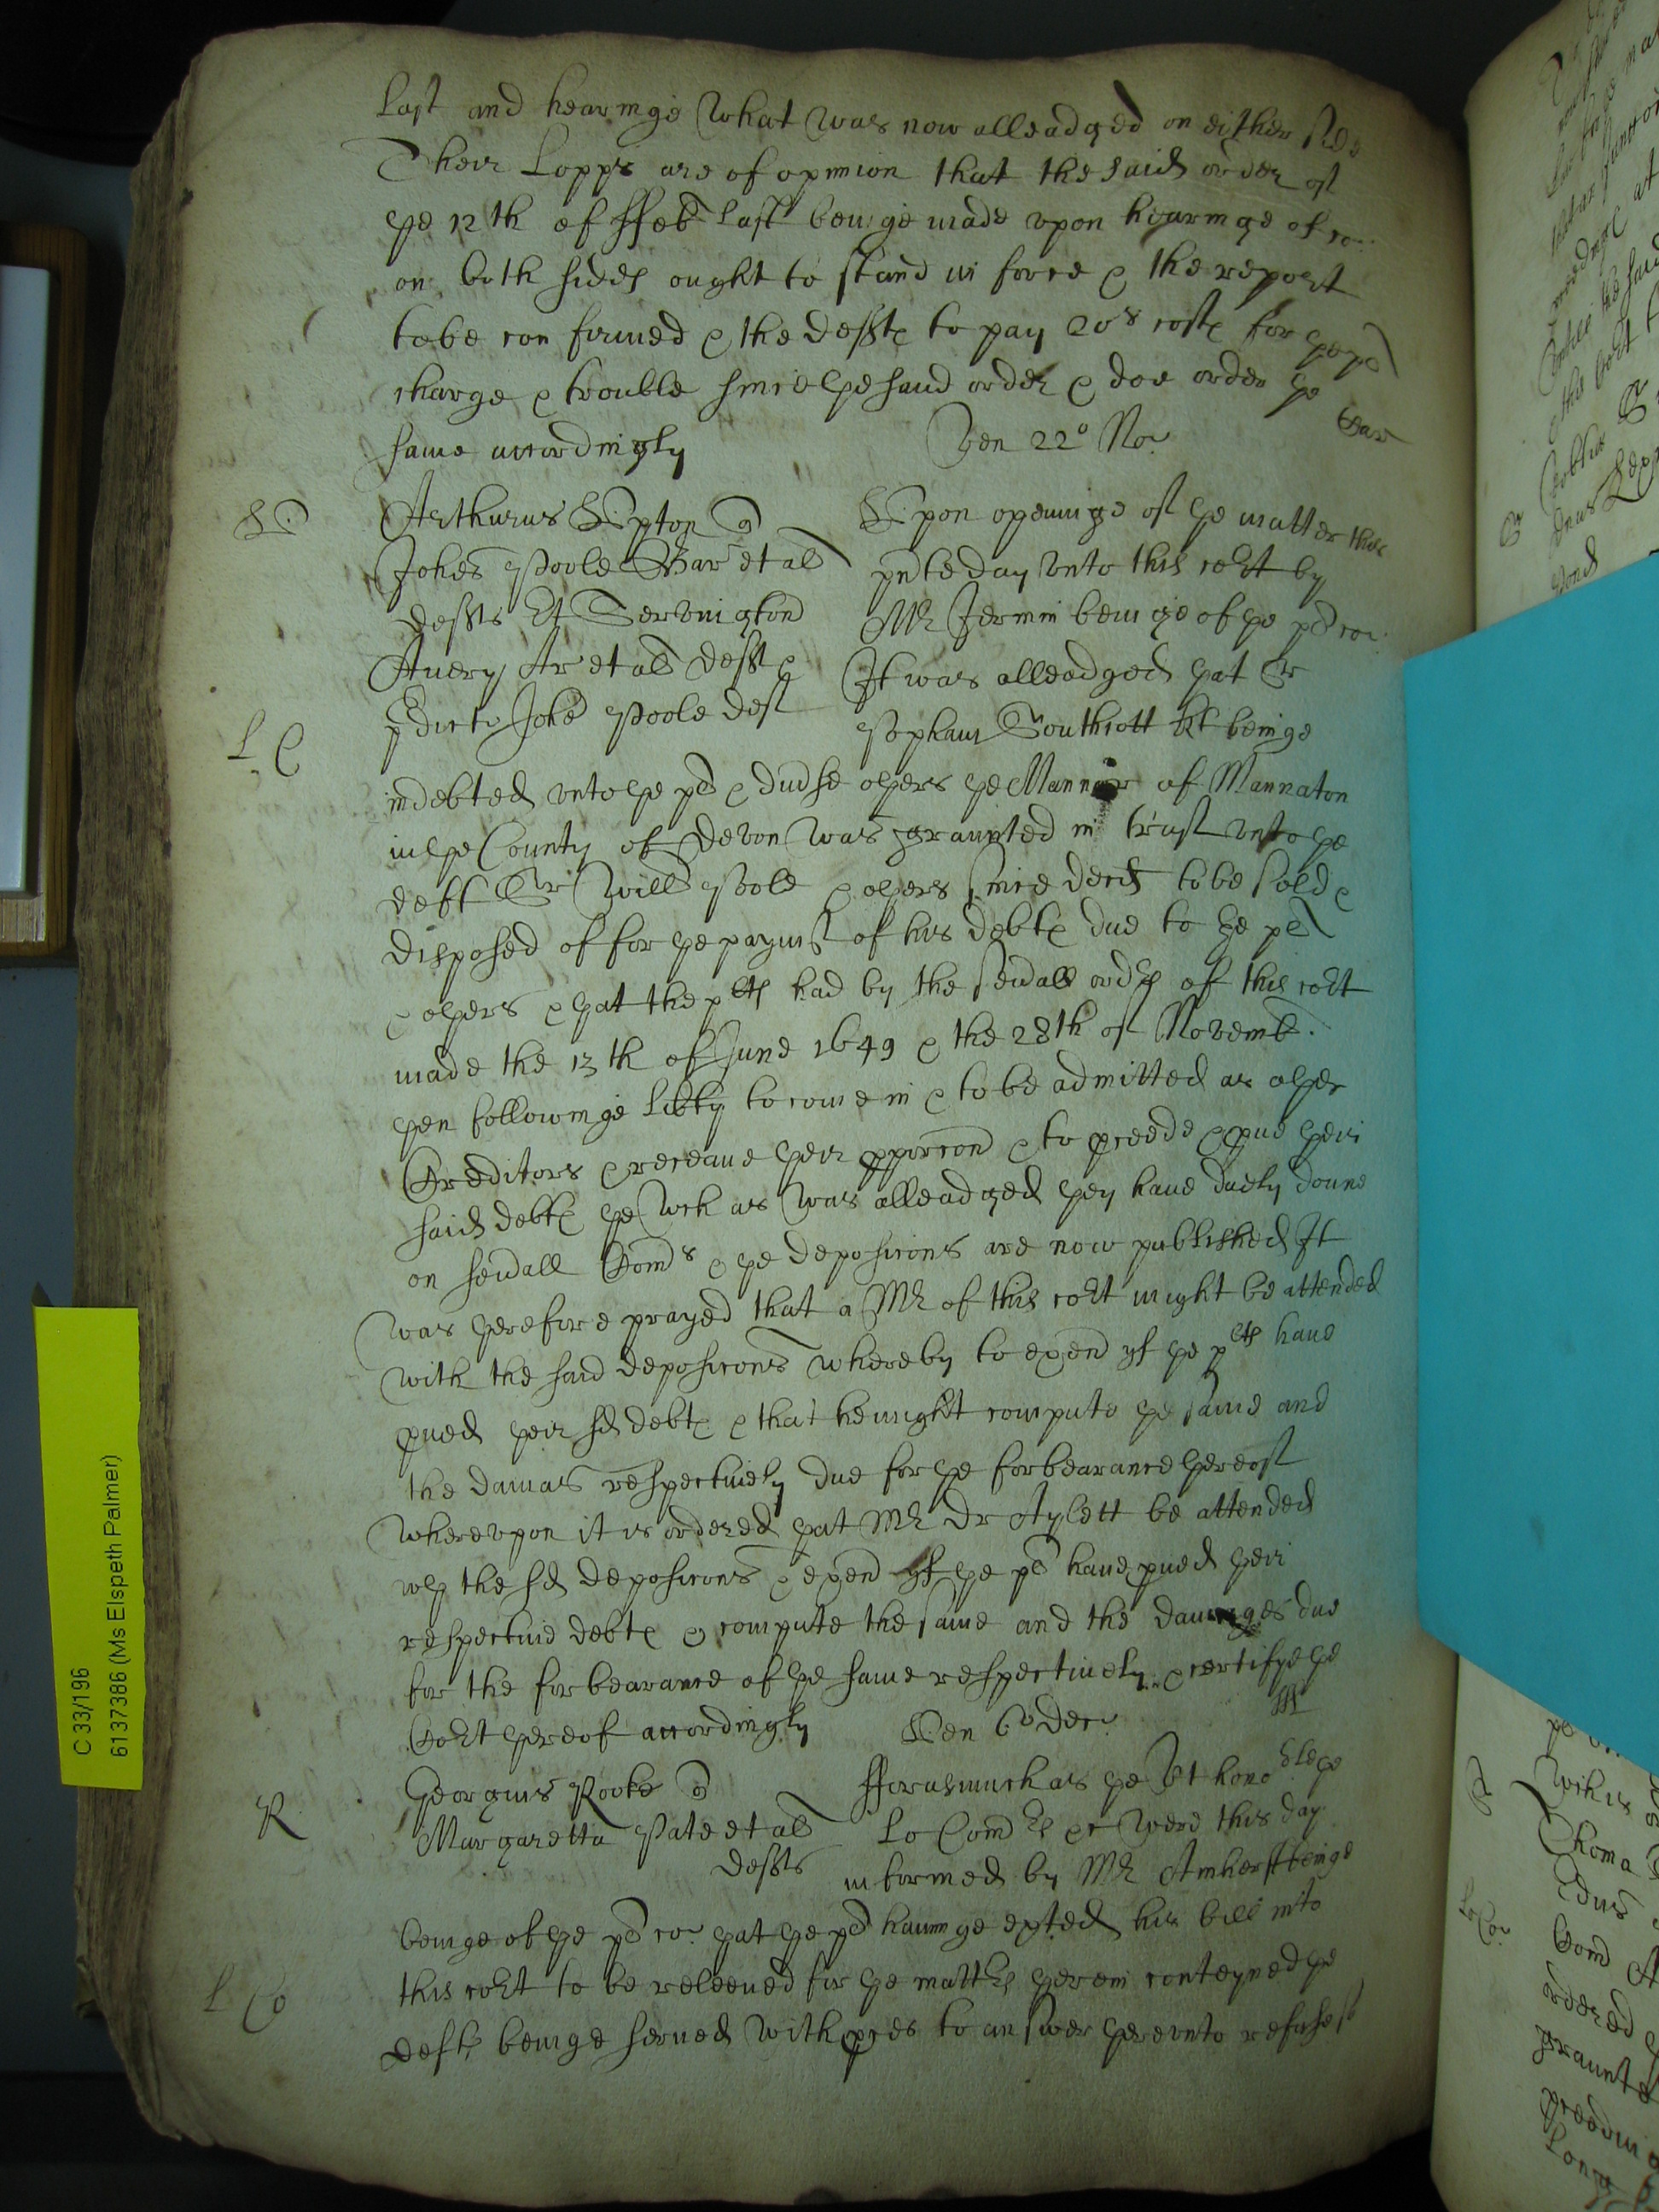 last and hearinge what was now alleadged on either side
Their Lopps are of opinion that the said order of
ye 12th of ffeb last beinge made upon hearinge of co
on both sides ought to stand in force & the report
to be confirmed & the defts to pay 20s costs for ye pl
charge & trouble since ye said order & doe order ye
same accordingly
Ven 22o No
Arthurus Upton q
Johes Poole Bar et al
defts Et Servington
Avery Ar et al deft e
pdicto Johe Poole deft
Upon openinge of ye matter this
pnte day unto this cort by
Mr Jermin beinge of ye pl co
It was alleadged yat Sr
Popham Southcott kt beinge
L C
indebted unto ye pl & ye Mannor of Mannaton
in ye County of Devon was graunted in trust unto ye
deft Sr Will Pole & oyers since decd to be sold &
disposed of for ye paymt of his debts due to ye pl
& oyers & yat the plts had by the sevall ordrs of this cort
made the 13th of June 1649 & the 28th of Novemb.
yen followinge libty to come in & to be admitted as oyer
Creditors & receave yeir pporcon & to pceede & pve yeir
said debts ye wch as was alleadged yey have duely donne
on sevall Coms & ye deposicons are now published It
was yerefore prayed that a Mr of this cort might be attended
with the said deposicons whereby to exend yf ye plts have
pved yeir sd debts & that he might compute ye same and
the damas respectively due for ye forbearance yereof
whereupon it is ordered yat Mr Dr Aylett be attended
wth the sd deposicons & exend yf ye pl have pved yeir
respective debts & compute the same and the damages due
for the forbearance of ye same respectively & certifye ye
Cort yereof accordingly
Ven 6o Dec
R
Georgius Rooke q
Margaretta Pate et al
defts
fforasmuch as ye Rt honoble ye
Lo Comrs &c were this day
informed by Mr Amherst beinge
beinge of ye pl co yat ye pl havinge exted his bill into
L Co
this cort to be releeved for ye mattrs yerein conteyned ye
defts beinge served with pces to answer yereunto refuse
C 33/196
6137386 (Ms Elspeth Palmer)